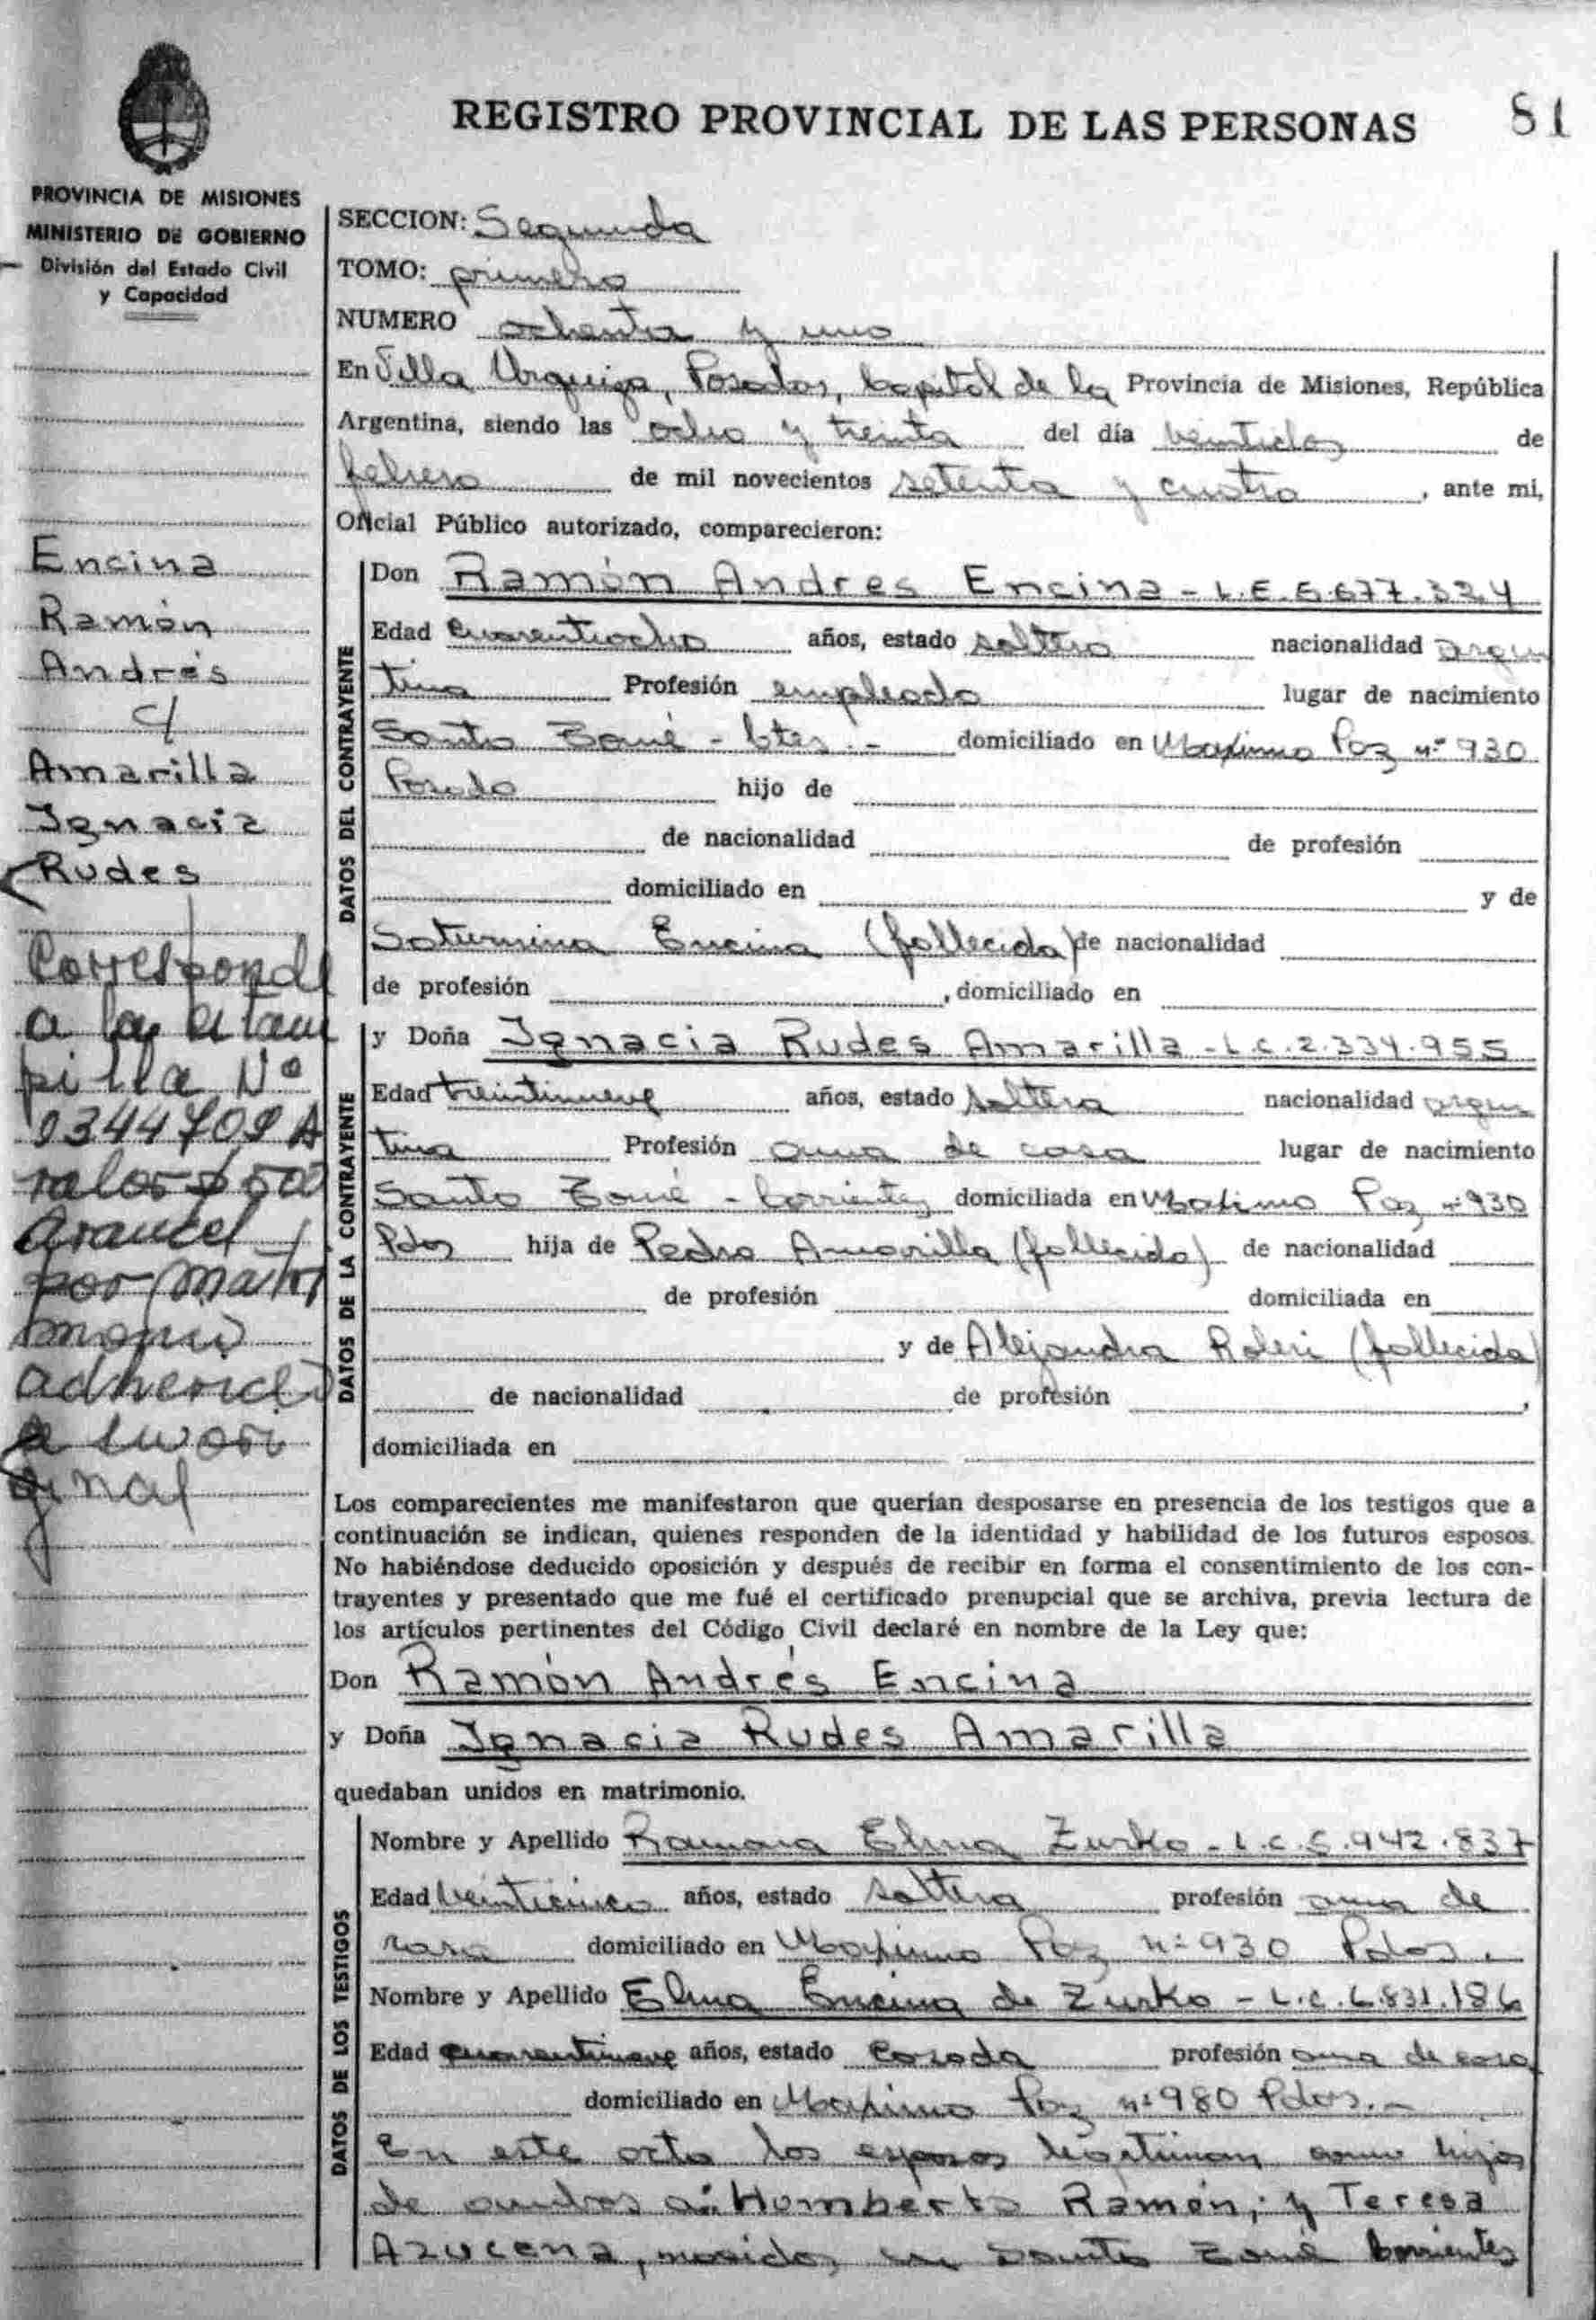 REGISTRO PROVINCIAL DE LAS PERSONAS 81
PROVINCIA DE MISIONES
MINISTERIO DE GOBIERNO
División del Estado Civil
y Capacidad
Encina
Ramón
Andrés
c/
Amarilla
Ignacia
Rudes
Corresponde
a la estam
pilla Nº
9344709 A
valor $ 500
arancel
por matri
monio
adherida
a su ori
ginal
SECCION: Segunda
TOMO: primero
NUMERO ochenta y uno
En Villa Urquiza, Posadas, Capital de la Provincia de Misiones, República
Argentina, siendo las ocho y treinta del día veintidos de
febrero de mil novecientos setenta y cuatro, ante mi,
Oficial Público autorizado, comparecieron:
DATOS DEL CONTRAYENTE
Don Ramón Andres Encina - L.E. 5.677.334
Edad cuarentiocho años, estado soltero nacionalidad argen
tina Profesión empleado lugar de nacimiento
Santo Tomé - Ctes. - domiciliado en Maximo Paz nº 930
Posada hijo de
de nacionalidad de profesión
domiciliado en y de
Saturnina Encina (fallecida) de nacionalidad
de profesión , domiciliado en
DATOS DE LA CONTRAYENTE
y Doña Ignacia Rudes Amarilla - L.C. 2.334.955
Edad treintinueve años, estado soltera nacionalidad argen
tina Profesión ama de casa lugar de nacimiento
Santo Tomé - Corrientes domiciliada en Maximo Paz nº 930
Pdas hija de Pedro Amarilla (fallecido) de nacionalidad
de profesión domiciliada en
y de Alejandra (fallecida)
de nacionalidad de profesión ,
domiciliada en
Los comparecientes me manifestaron que querían desposarse en presencia de los testigos que a
continuación se indican, quienes responden de la identidad y habilidad de los futuros esposos.
No habiéndose deducido oposición y después de recibir en forma el consentimiento de los con-
trayentes y presentado que me fué el certificado prenupcial que se archiva, previa lectura de
los artículos pertinentes del Código Civil declaré en nombre de la Ley que:
Don Ramón Andrés Encina
y Doña Ignacia Rudes Amarilla
quedaban unidos en matrimonio.
DATOS DE LOS TESTIGOS
Nombre y Apellido Ramona Elma Zurko - L.C. 5.942.837
Edad veinticinco años, estado soltera profesión ama de
casa domiciliado en Maximo Paz nº 930 Pdas.
Nombre y Apellido Elma Encina de Zurko - L.C. 6.831.186
Edad cuarentinueve años, estado casada profesión ama de casa
domiciliado en Maximo Paz nº 980 Pdas. -
En este acto los esposos legitiman como hijos
de ambos a: Humberto Ramón; y Teresa
Azucena, nacidos en Santo Tomé Corrientes